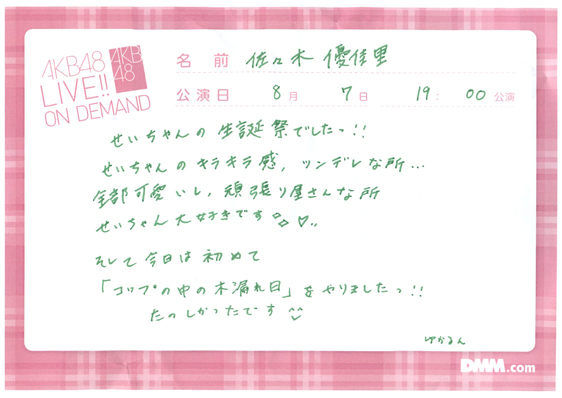 AKB48
LIVE!!
ON DEMAND
AKB
48
名前 佐々木 優佳里
公演日 8月 7日 19:00公演
せいちゃんの 生誕祭でしたっ!!
せいちゃんの キラキラ感, ツンデレな所…
全部可愛いし, 頑張り屋さんな所
せいちゃん大好きです♡
そして今日は 初めて
「コップの中の木漏れ日」をやりましたっ!!
たのしかったです
ゆかるん
DMM.com